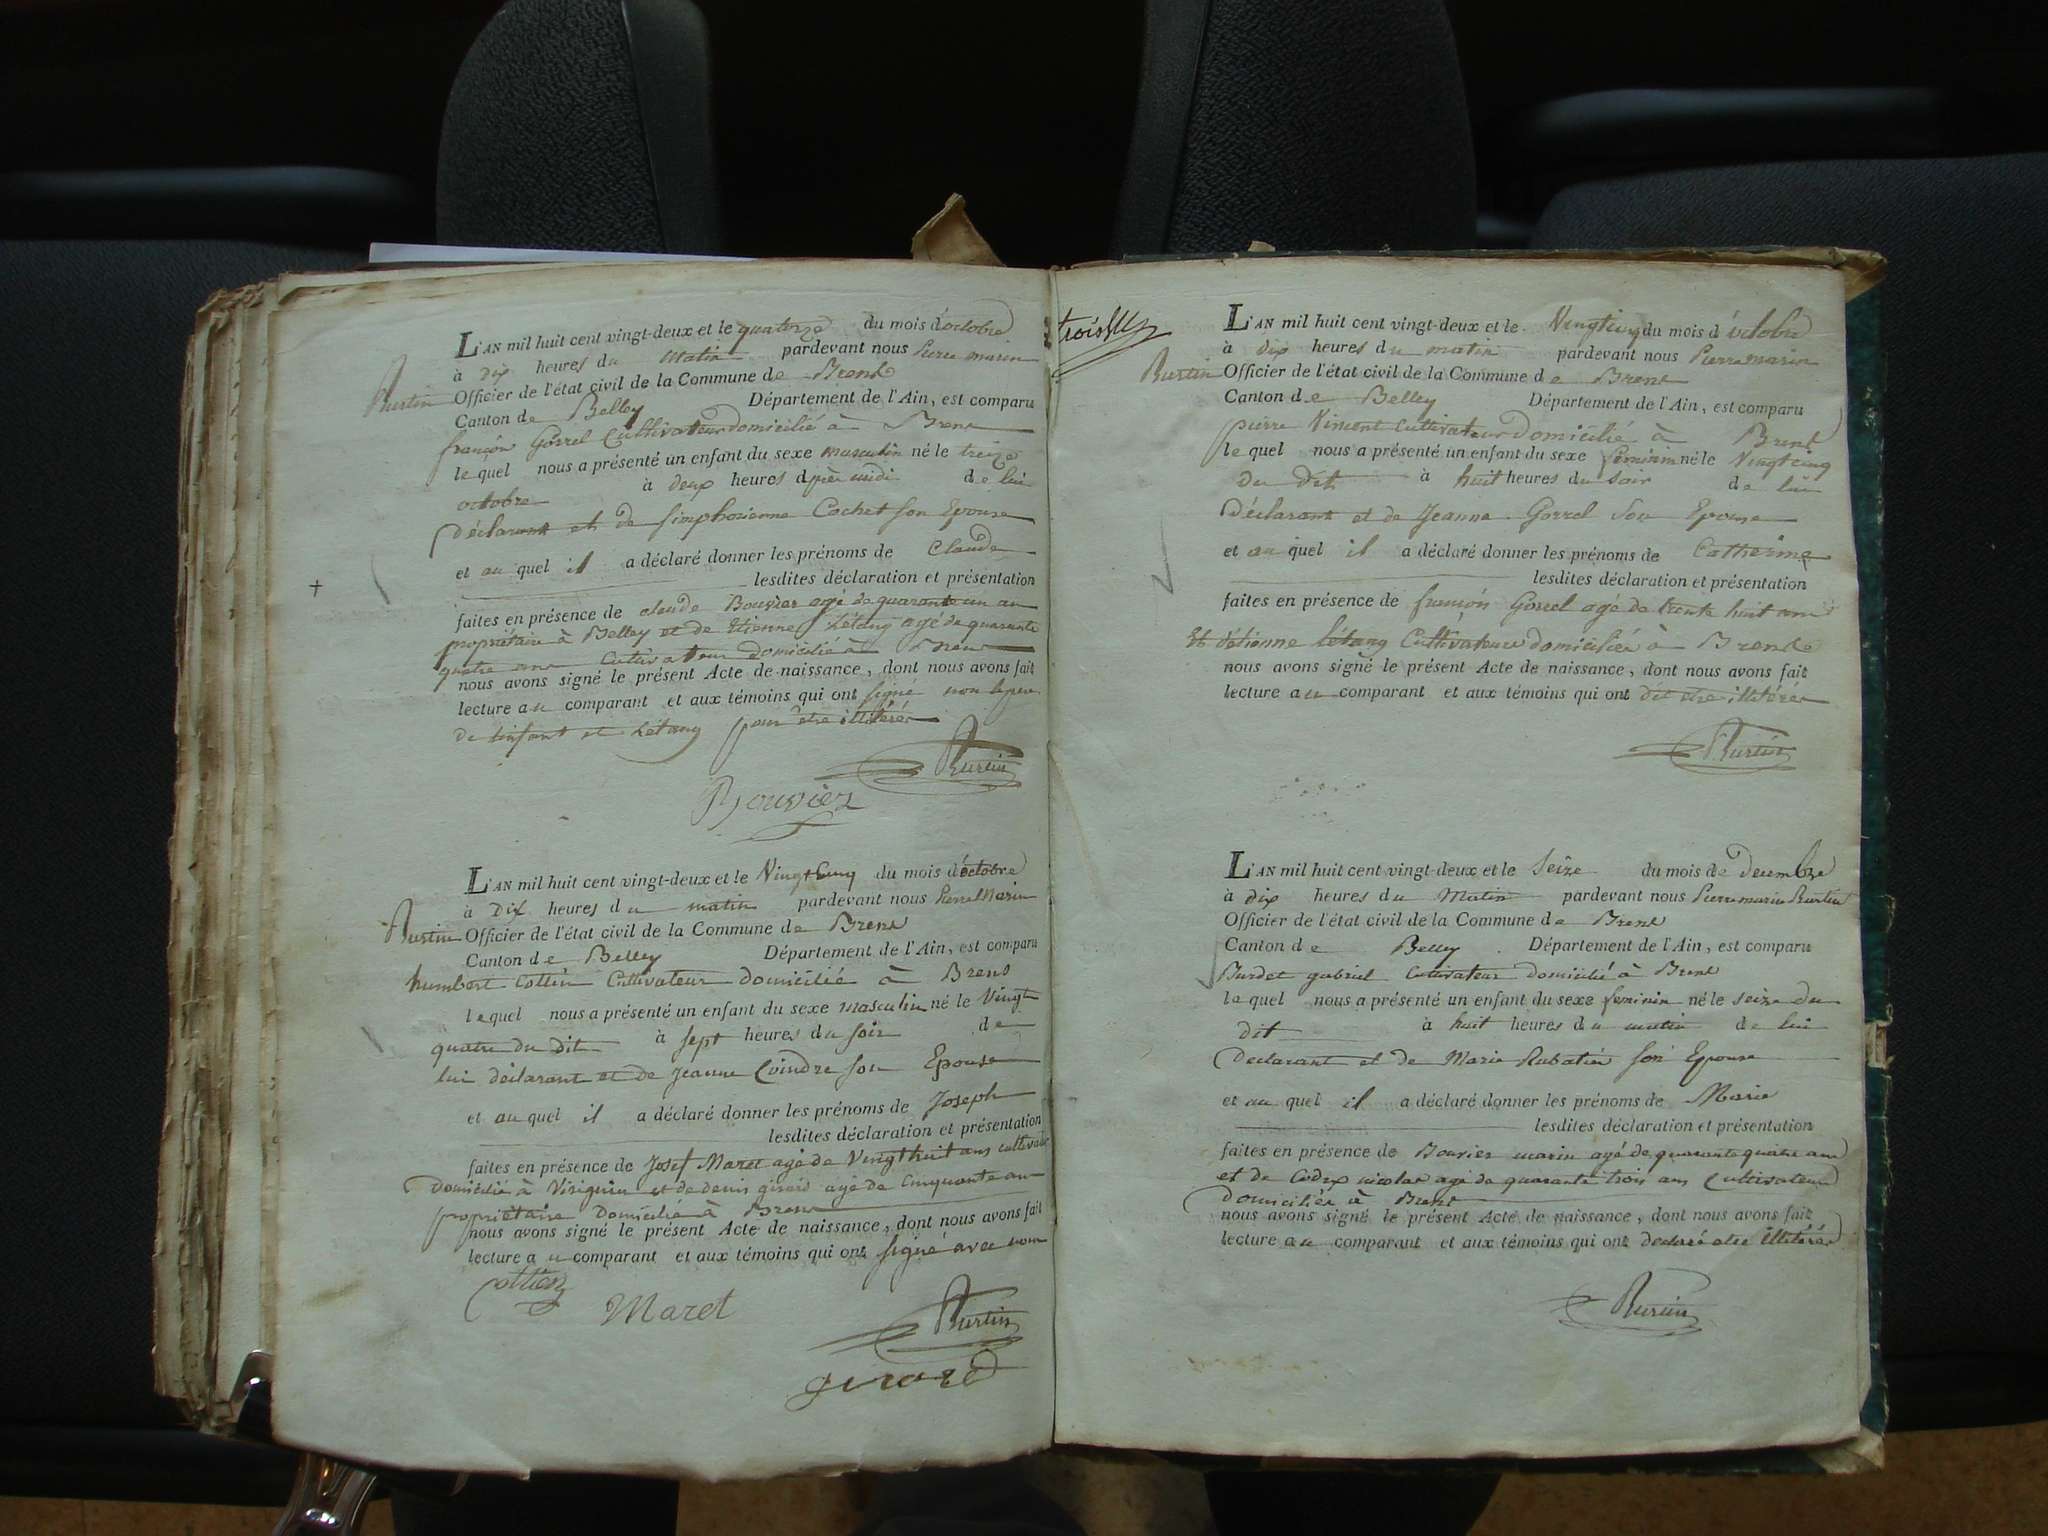 L'AN mil huit cent vingt-deux et le quatorze du mois d'octobre
à dix heures du matin pardevant nous Pierre marin
Burtin Officier de l'état civil de la Commune de Brens
Canton de Belley Département de l'Ain, est comparu
françois Gorrel Cultivateur domicilié à Brens
lequel nous a présenté un enfant du sexe masculin né le treize
octobre à deux heures d'près midi de lui
déclarant et de Simphorienne Cochet son Epouse
et au quel il a déclaré donner les prénoms de Claude
lesdites déclaration et présentation
faites en présence de claude Bouvier agé de quarante un an
propriétaire à Belley et de Etienne Létang agé de quarante
quatre ans Cultivateur domicilié à Brens
nous avons signé le présent Acte de naissance, dont nous avons fait
lecture au comparant et aux témoins qui ont signé non le père
de l'enfant et Létang pour être illitérés
Burtin
Bouvier
L'AN mil huit cent vingt-deux et le Vingtcinq du mois d'octobre
à Dix heures du matin pardevant nous Pierre Marin
Burtin Officier de l'état civil de la Commune de Brens
Canton de Belley Département de l'Ain, est comparu
humbert Cottin Cultivateur domicilié à Brens
lequel nous a présenté un enfant du sexe masculin né le Vingt
quatre du dit à sept heures du soir de
lui déclarant et de Jeanne Coindre son Epouse
et au quel il a déclaré donner les prénoms de Joseph
lesdites déclaration et présentation
faites en présence de Josef Maret agé de Vingthuit ans cultivateur
domicilié à Virignin et de denis girard agé de Cinquante an
propriétaire Domicilié à Brens
nous avons signé le présent Acte de naissance, dont nous avons fait
lecture au comparant et aux témoins qui ont signé avec nous
Cottin
Maret
Burtin
girard
trois
L'AN mil huit cent vingt-deux et le Vingtcinq du mois d'octobre
à dix heures du matin pardevant nous Pierre marin
Burtin Officier de l'état civil de la Commune de Brens
Canton de Belley Département de l'Ain, est comparu
pierre Vincent Cultivateur Domicilié à Brens
lequel nous a présenté un enfant du sexe feminin né le Vingtcinq
du dit à huit heures du soir de lui
déclarant et de Jeanne Gorrel son Epouse
et au quel il a déclaré donner les prénoms de Catherine
lesdites déclaration et présentation
faites en présence de françois Gorrel agé de trente huit ans
Et d'étienne létang Cultivateurs domiciliés à Brens
nous avons signé le présent Acte de naissance, dont nous avons fait
lecture au comparant et aux témoins qui ont dit etre illitérés
Burtin
L'AN mil huit cent vingt-deux et le Seize du mois de decembre
à dix heures du Matin pardevant nous Pierre marin Burtin
Officier de l'état civil de la Commune de Brens
Canton de Belley Département de l'Ain, est comparu
Burdet gabriel Cultivateur domicilié à Brens
lequel nous a présenté un enfant du sexe feminin né le seize du
dit à huit heures du matin de lui
declarant et de Marie Rubatier son Epouse
et au quel il a déclaré donner les prénoms de Marie
lesdites déclaration et présentation
faites en présence de Bouvier marin agé de quarante quatre ans
et de nicolas agé de quarante trois ans Cultivateurs
domiciliés à Brens
nous avons signé le présent Acte de naissance, dont nous avons fait
lecture au comparant et aux témoins qui ont declaré etre illitérés
Burtin